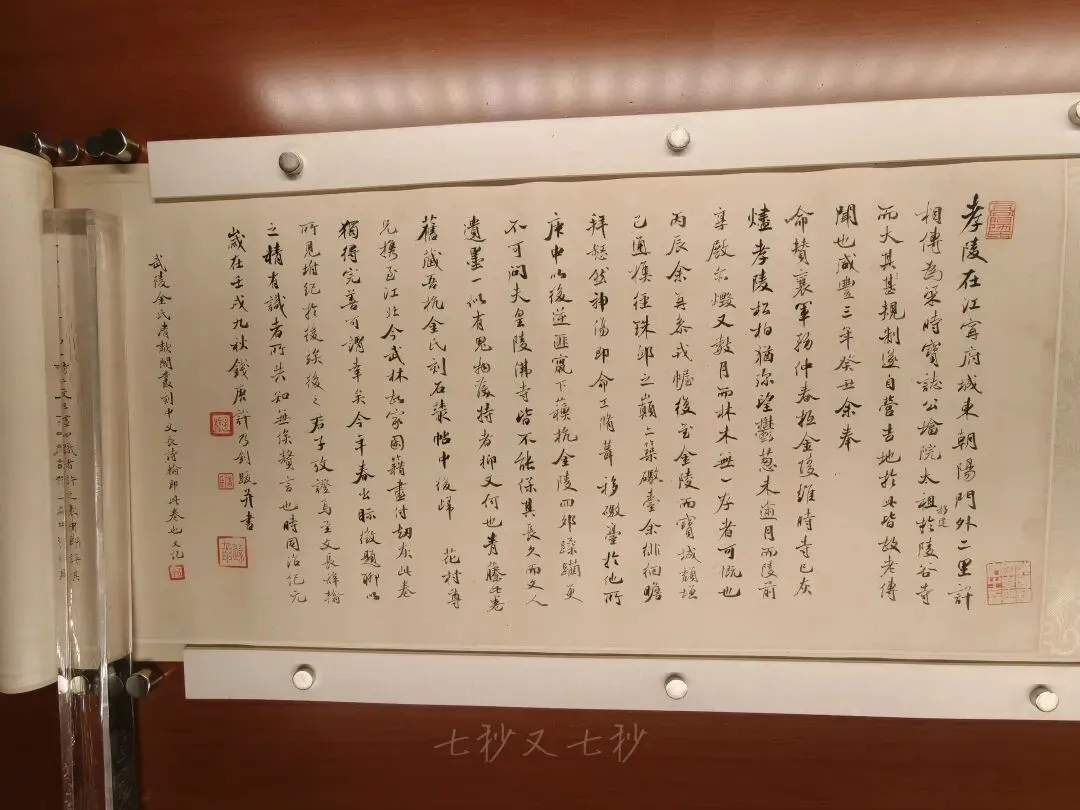 孝陵在江寧府城東朝陽門外二里許
相傳為梁時寶誌公塔院太祖於陵谷寺
移建
而大其基規制遂自營吉地於此皆故老傳
聞也咸豐三年癸丑余奉
命贊襄軍務仲春抵金陵維時寺已灰
燼孝陵松柏猶深望鬱蔥未逾月而陵前
享殿亦燬又數月而林木無一存者可慨也
丙辰余再參戎幄後至金陵而寶城頹垣
已通樵徑殊郊之巔亦築礮臺余徘徊瞻
拜愁然神傷即命工脩葺移礮臺於他所
庚申以後逆匪竄下蘇杭金陵四郊蹂躪更
不可問夫皇陵佛寺皆不能保其長久而文人
遺墨一似有鬼物護持者抑又何也青藤此卷
舊藏吾杭金氏刻石叢帖中後歸 花村尊
兄携至江北今武林故家圖籍盡付劫灰此卷
獨得完善可謂幸矣今年春出眎徵題聊以
所見坿紀於後俟後之君子攷證焉至文長揮翰
之精有識者所共知無俟贅言也時同治紀元
歲在壬戌九秋錢唐許乃釗跋并書
武陵金氏清歗閣叢刻中文長詩翰即此卷也又記
七秒又七秒